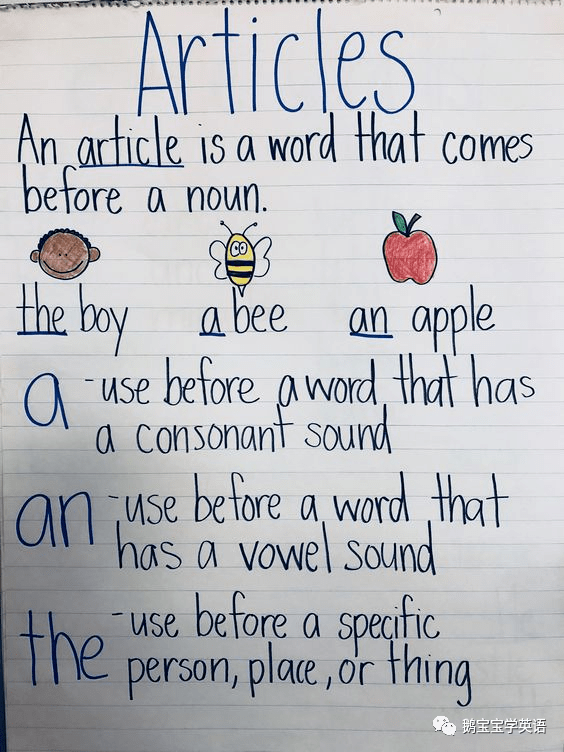 Articles
An article is a word that comes
before a noun.
the boy a bee an apple
a -use before a word that has
a consonant sound
an -use before a word that
has a vowel sound
the -use before a specific
person, place, or thing
鹅宝宝学英语